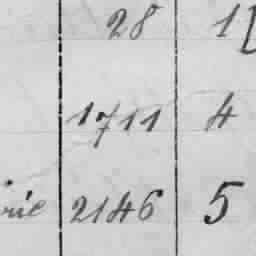 28 1
1711 4
2146 5